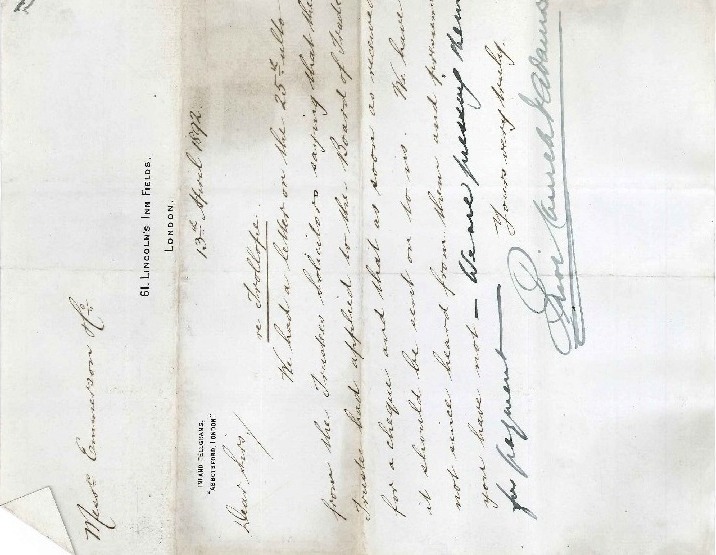 61, LINCOLN'S INN FIELDS,
LONDON.
13th April 1892.
INLAND TELEGRAMS,
"ABBOTSFORD, LONDON"
Dear Sirs/
re Trollope.
We had a letter on the 25th ulto
from the Trustees Solicitors saying that the
Trustee had applied to the Board of Trade
for a cheque and that as soon as received
it should be sent on to us. We have
not since heard from them and presume
you have not – We are pressing them
for payment –
Yours very truly.
Messrs